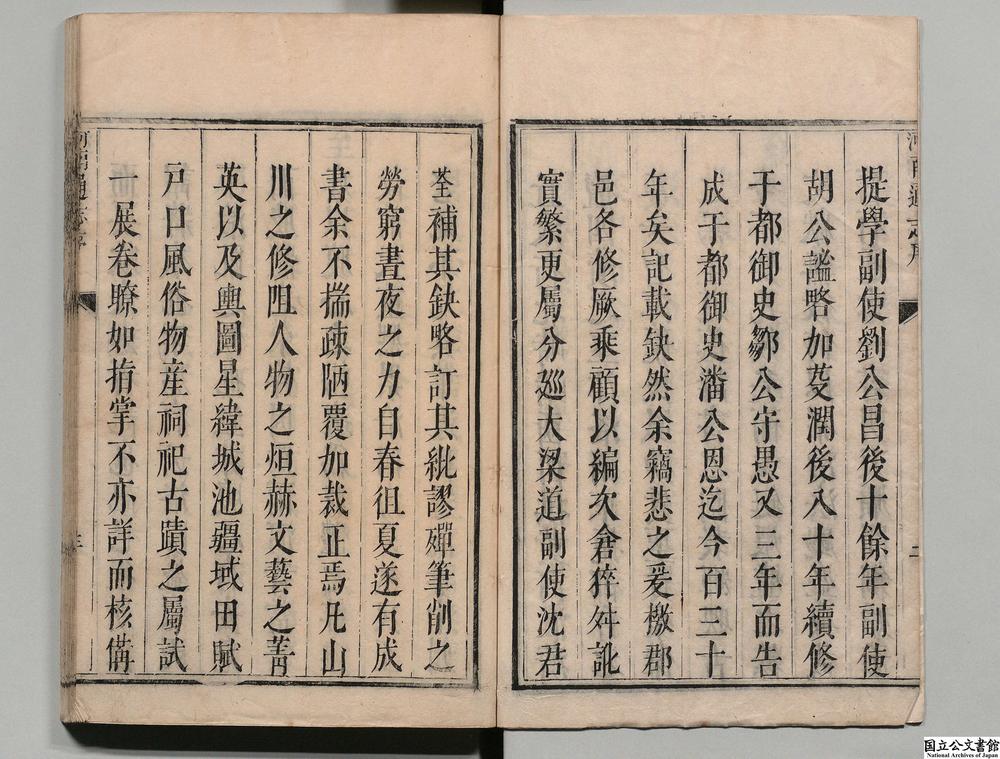 河南通志序
二
提學副使劉公昌後十餘年副使
胡公謐略加芟潤後八十年續修
于都御史鄒公守愚又三年而告
成于都御史潘公恩迄今百三十
年矣記載缺然余竊悲之爰檄郡
邑各修厥乘顧以編次倉猝舛訛
實繁更屬分廵大梁道副使沈君
荃補其缺略訂其紕謬殫筆削之
勞窮晝夜之力自春徂夏遂有成
書余不揣疎陋覆加裁正焉凡山
川之修阻人物之烜赫文藝之菁
英以及輿圖星緯城池疆域田賦
戸口風俗物産祠祀古蹟之屬試
一展卷瞭如指掌不亦詳而核備
河南通志序
三
国立公文書館
National Archives of Japan